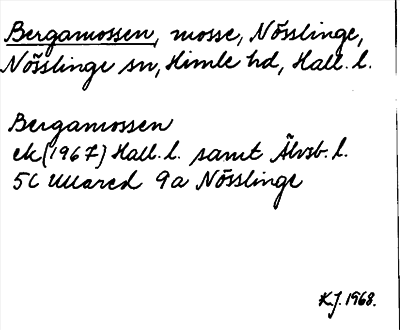 Bergamossen, mosse, Nösslinge,
Nösslinge sn, Himle hd, Hall. l.
Bergamossen
ek (1967) Hall. l. samt Älvsb. l.
5C Ullared 9a Nösslinge
K.J. 1968.